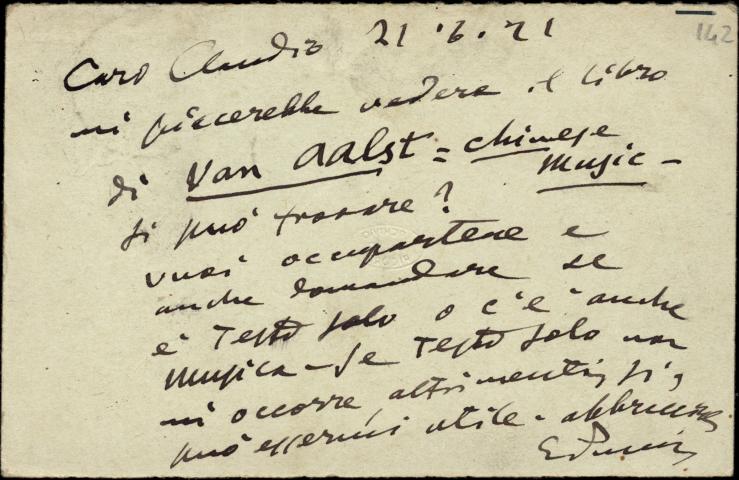 142
Caro Claudio 21.6.21
mi piacerebbe vedere il libro
di Van Aalst = chinese
music -
si può trovare?
vuoi occupartene e
anche domandare se
è Testo solo o c'è anche
musica - Se Testo solo non
mi occorre, altrimenti, sì,
può essermi utile - abbracci